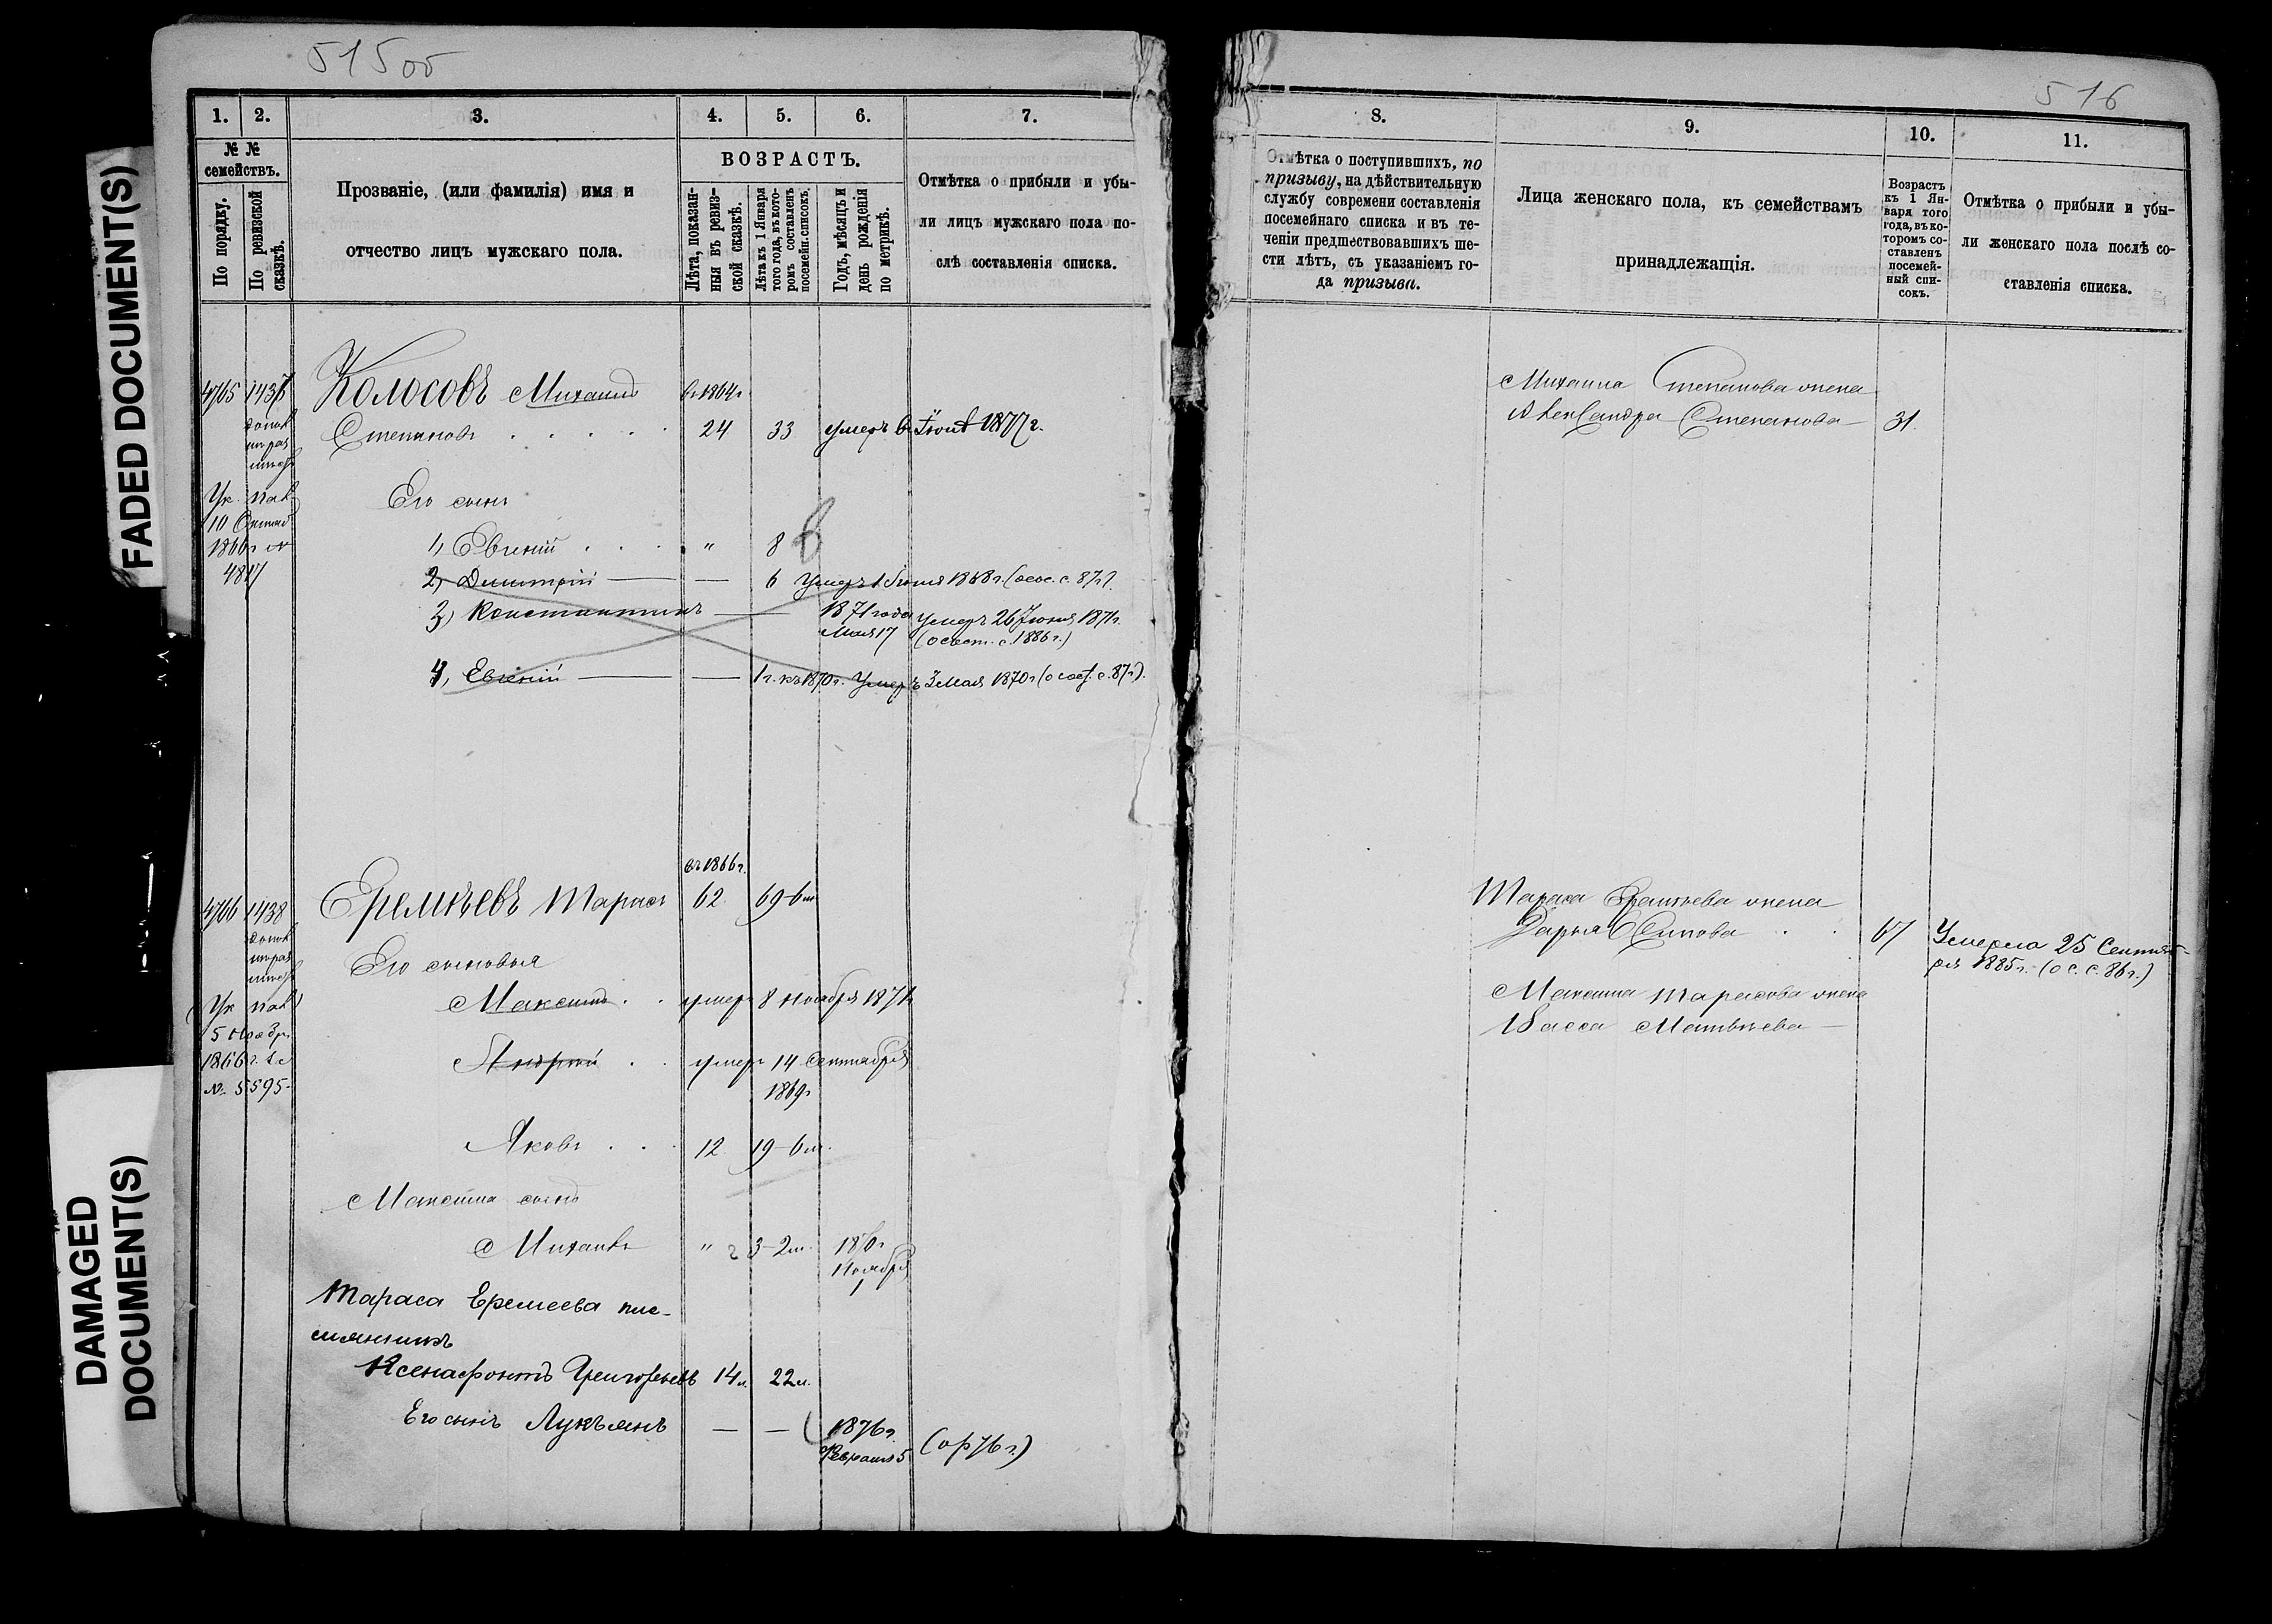 FADED DOCUMENT(S)
DAMAGED
DOCUMENT(S)
515 об
1.
2.
3.
4.
5.
6.
7.
№ №
семействъ.
По порядку.
По ревизской
сказкѣ.
Прозваніе, (или фамилія) имя и
отчество лицъ мужскаго пола.
ВОЗРАСТЪ.
Лѣта, показан-
ныя въ ревиз-
ской сказкѣ.
Лѣта къ 1 Января
того года, въ кото-
ромъ составленъ
посемейн. списокъ.
Годъ, мѣсяцъ и
день рожденія
по метрикѣ.
Отмѣтка о прибыли и убы-
ли лицъ мужскаго пола по-
слѣ составленія списка.
4705 1437 Колосовъ Михаилъ въ 1864г
Степановъ 24 33 умеръ въ 1877 г.
Ук. пал.
10
1866г №
4817
Его сынъ
1, Евгеній " 8
2, Дмитрій — — 6 Умеръ 1 Іюня 1868 г. 87г.
3, Константинъ — 1871 года Умеръ 26 Іюня 1871г.
Мая 17 1886г.)
4, Евгеній — — 1 г. къ 1870г. Умеръ 3 Мая 1870г 87г).
въ 1866г.
4706 1438 Еремѣевъ Тарасъ 62 69-6м
Его сыновья
Максимъ умеръ 8 Ноября 1871
Ук пал
5 Ноября
1866г.
№ 5595
Андрей умеръ 14 Сентября
1869г
Яковъ 12 19-6м.
Максима сынъ
Михаилъ " 3-2м. 1870г
Ноября
1
Тараса Еремеева пле-
мянникъ
Ксенафонтъ Григорьевъ 14л 22л.
Его сынъ Лукьянъ — — 1876г.
Февраля 5 76г.)
516
8.
9.
10.
11.
Отмѣтка о поступившихъ, по
призыву, на дѣйствительную
службу современи составленія
посемейнаго списка и въ те-
ченіи предшествовавшихъ ше-
сти лѣтъ, съ указаніемъ го-
да призыва.
Лица женскаго пола, къ семействамъ
принадлежащія.
Возрастъ
къ 1 Ян-
варя того
года, въ ко-
торомъ со-
ставленъ
посемей-
ный спи-
сокъ.
Отмѣтка о прибыли и убы-
ли женскаго пола послѣ со-
ставленія списка.
Михаила Степанова жена
Александра Степанова — 31.
Тараса Еремѣева жена
Дарья Осипова 67 Умерла 25 Сентяб-
ря 1885г. (о с. с. 86г.)
Максима Тарасова жена
Васса Матвѣева —